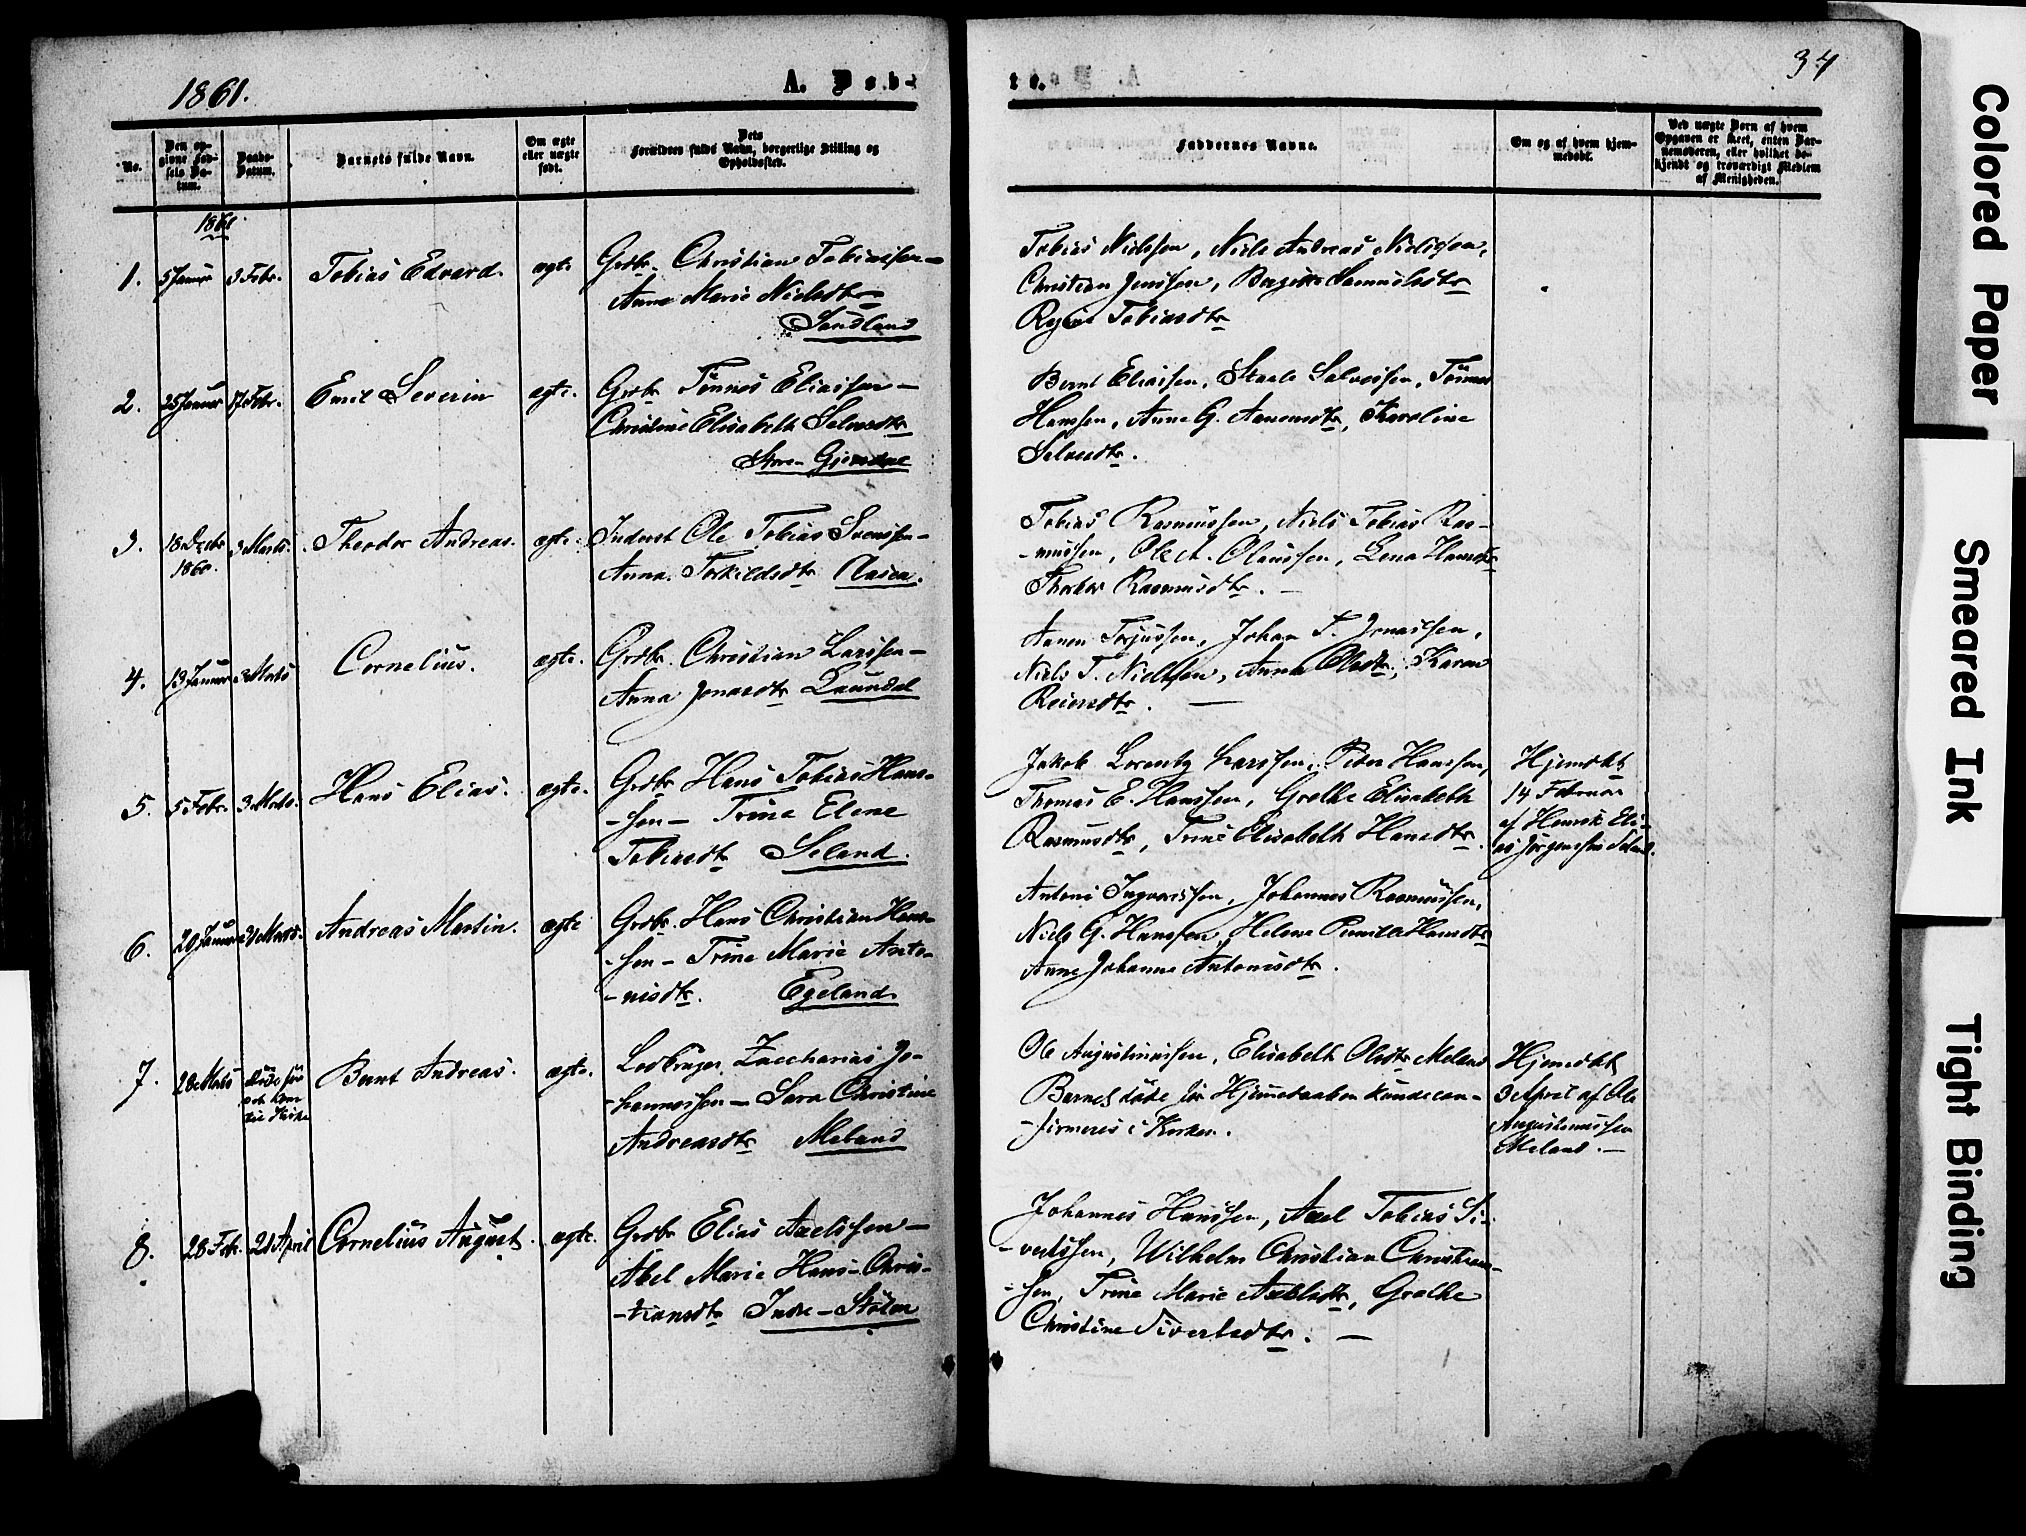 1861.
A. Døb-
te.
34
No.
Den op-
givne Fød-
sels Da-
tum.
Daabs-
Datum.
Barnets fulde Navn.
Om ægte
eller uægte
født.
Dets
Forældres fulde Navn, borgerlige Stilling og
Opholdssted.
Faddernes Navne.
Om og af hvem hjem-
medøbt.
Ved uægte Børn af hvem
Opgaven er skeet, enten Bar-
nemoderen, eller hvilket be-
kjendt og troværdigt Medlem
af Menigheden.
1861
1.
5 Januar
3 Febr.
Tobias Edvard.
ægte
Grdbr. Christian Tobiassen -
Anne Marie Nielsdtr
Sandland
Tobias Nielssen, Niels Andreas Nielssen,
Christian Jenssen, Samuelsdtr
Tobiasdtr
2.
25 Januar
17 Febr.
Emil Severin
ægte.
Grdbr Tönnes Eliassen -
Christine Elisabeth Salvesdtr
Store Gjerdne
Bernt Eliassen, Staale Salvessen, Tönnes
Hanssen, Anne G. Aanensdtr, Karoline
Salvesdtr.
3.
18 Decbr
1860.
3 Marts.
Theodor Andreas.
ægte.
Inderst Ole Tobias Svenssen -
Anna Torkildsdtr Aasen.
Tobias Rasmussen, Niels Tobias Ras-
-mussen, Ole A. Olaussen, Lena Hansdtr
Rasmusdtr. -
4.
13 Januar
3 Marts
Cornelius.
ægte.
Grdbr. Christian Larssen -
Anna Jonasdtr Laundal
Aanen Torjussen, Johan T. Jonassen,
Niels T. Nielssen, Anna Olsdtr, Karen
Reiersdtr. -
5.
5 Febr.
3 Marts.
Hans Elias.
ægte.
Grdbr Hans Tobias Hans-
-sen - Trine Elene
Tobiasdtr Seland.
Jakob Larssen, Peder Hanssen,
Thomas E. Hanssen, Grethe Elisabeth
Rasmusdtr, Trine Elisabeth Hansdtr.
Hjemdbt
14 Februar
af Henrik Eli-
as Jörgenssen Seland.
6.
20 Januar
31 Marts.
Andreas Martin.
ægte
Grdbr. Hans Christian Hans-
-sen - Trine Marie Anto-
-nisdtr. Egeland.
Antoni Ingvaldssen, Johannes Rasmussen,
Niels G. Hanssen, Helene Hansdtr
Anne Johanne Antonisdtr.
7.
28 Marts
döde för
det kom
til Kirke
Bernt Andreas.
ægte.
Ledbruger Zaccharias Jo-
-hannessen - Sara Christine
Andreasdtr Meland
Ole Augustinussen, Elisabeth Olsdtr Meland
Barnet döde för Hjemmedaaben kunde con-
-firmeres i Kirken.
Hjemdbt
3 April af Ole
Augustinussen
Meland. -
8.
28 Febr.
21 April
Cornelius August.
ægte.
Grdbr Elias Axelssen -
Abel Marie Hans-Chris-
-tiansdtr Indre - Stölen
Johannes Hanssen, Axel Tobias Si-
-vertssen, Wilhelm Christian Christians-
-sen, Trine Marie Axelsdtr, Grethe
Christine Sivertsdtr. -
Colored Paper
Smeared Ink
Tight Binding